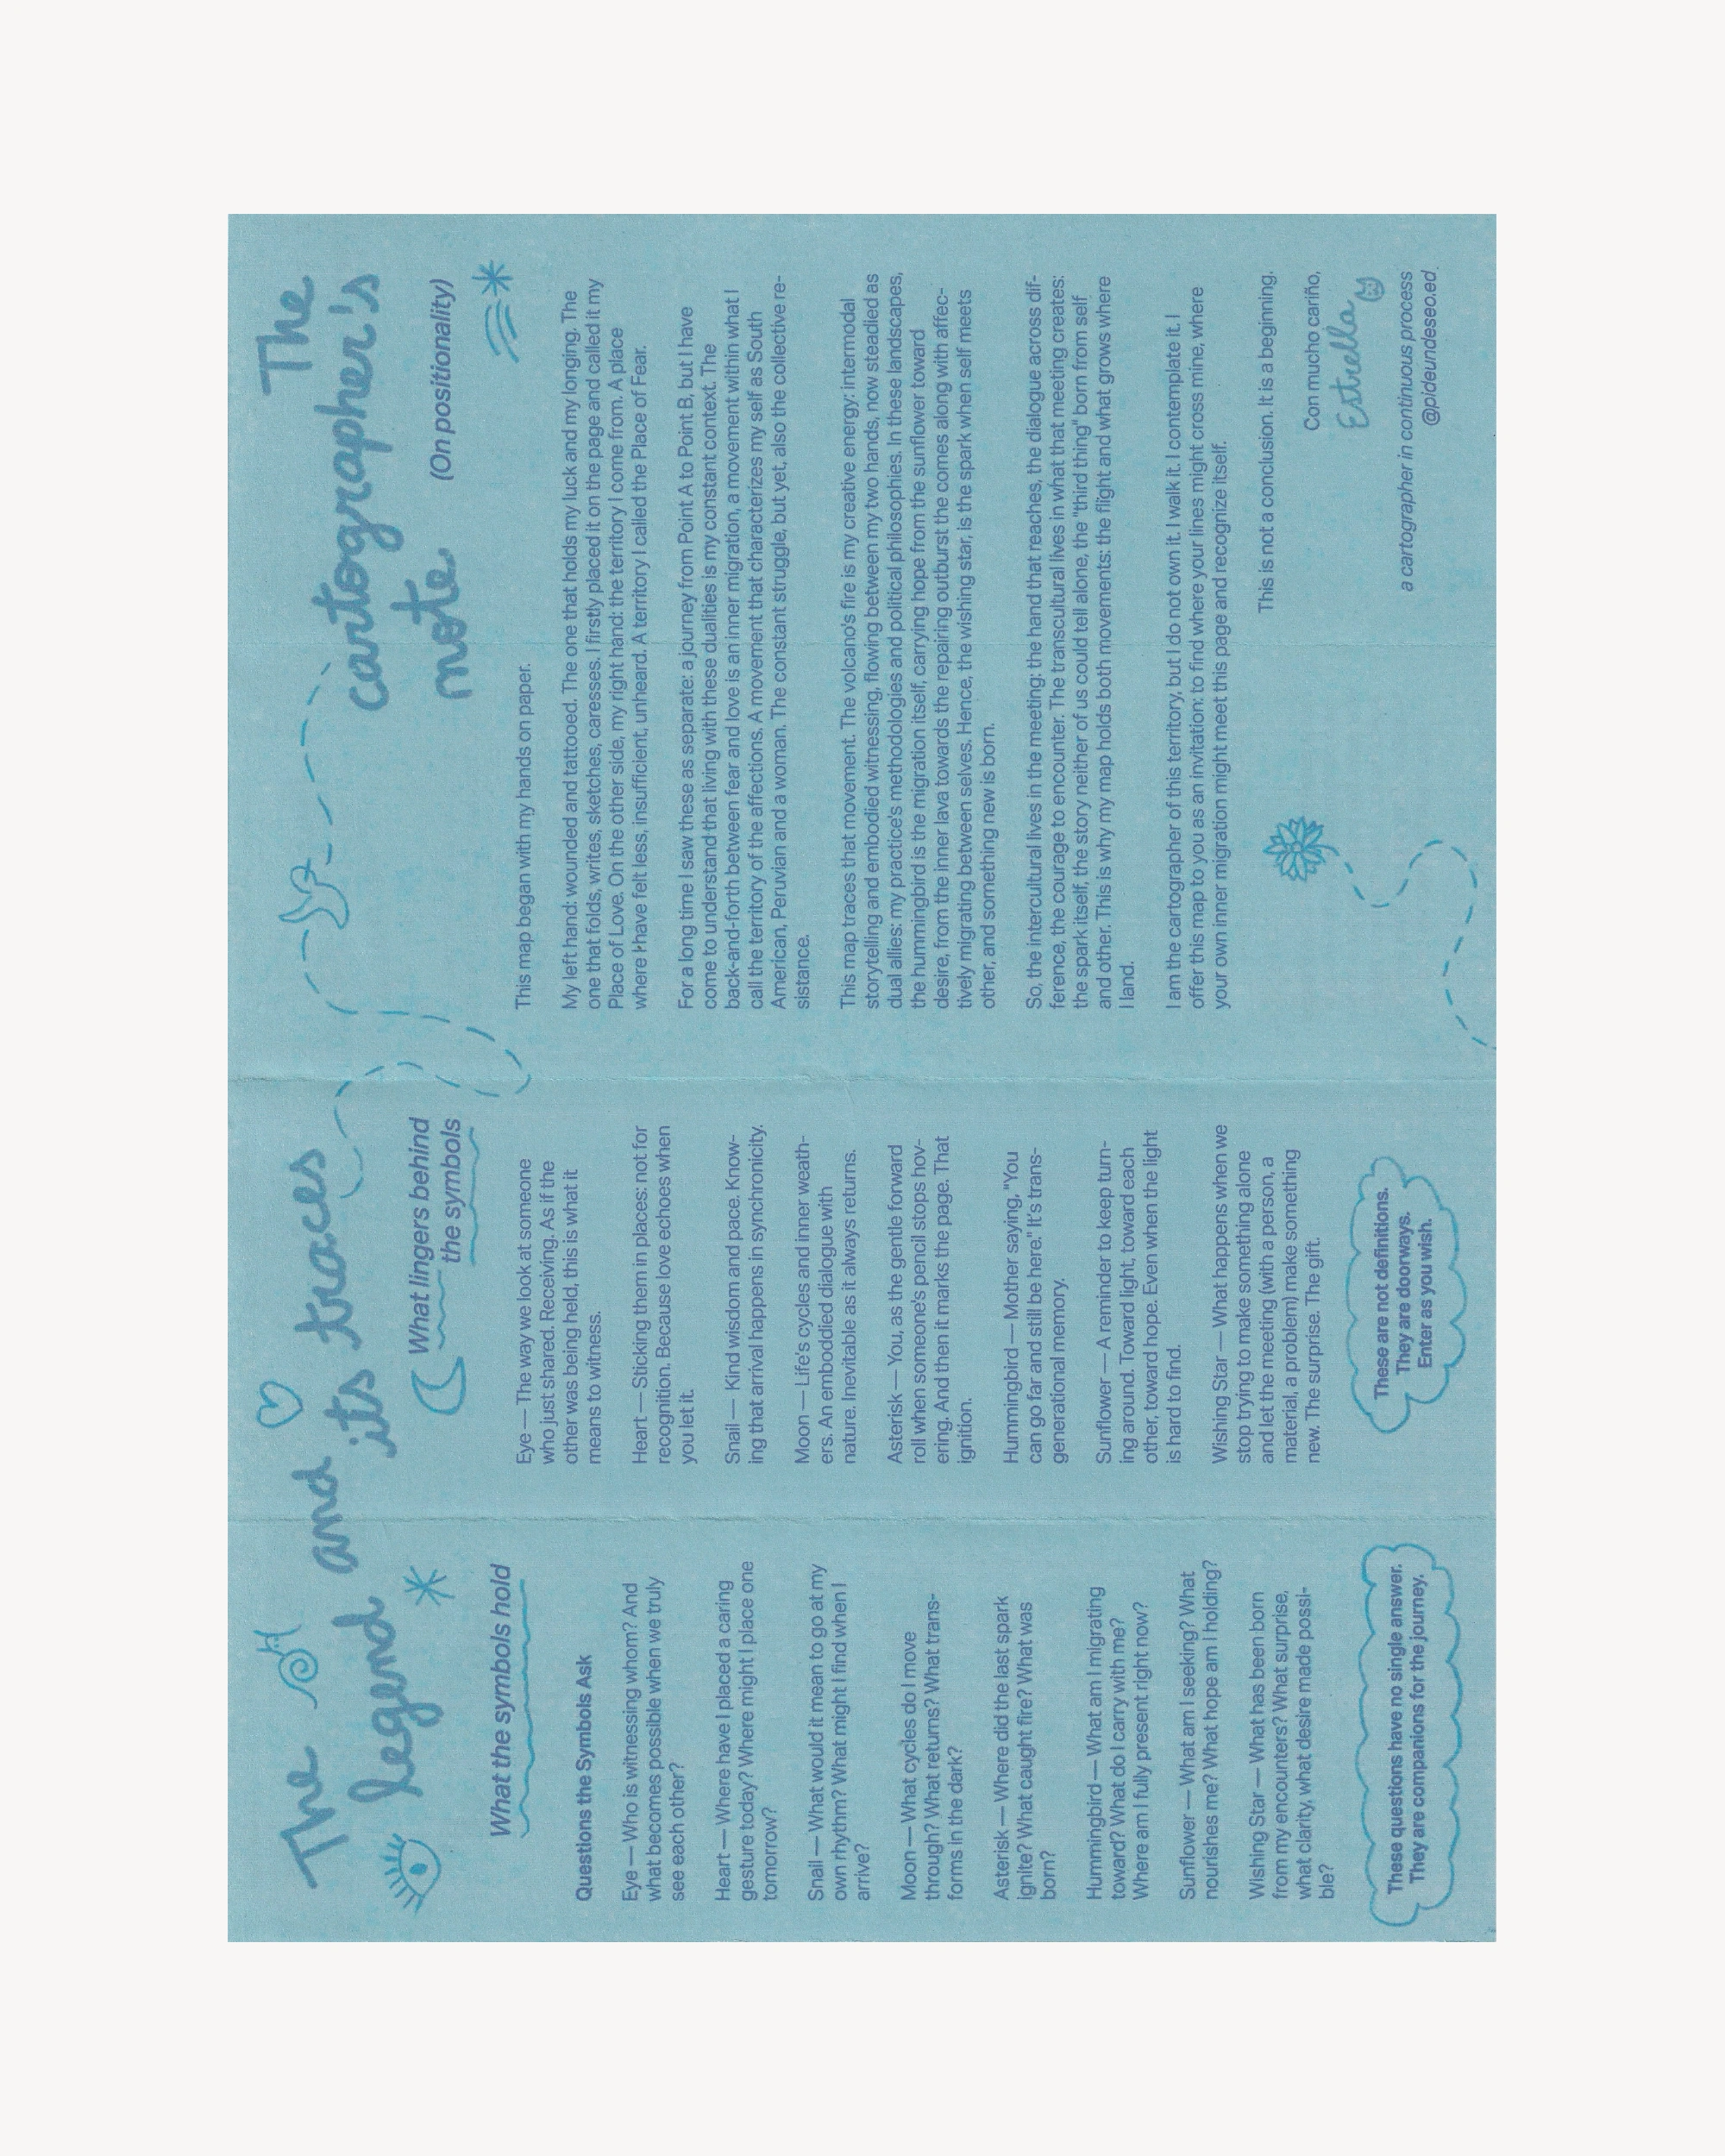 The legend and its traces
What the symbols hold
Questions the Symbols Ask
Eye — Who is witnessing whom? And
what becomes possible when we truly
see each other?
Heart — Where have I placed a caring
gesture today? Where might I place one
tomorrow?
Snail — What would it mean to go at my
own rhythm? What might I find when I
arrive?
Moon — What cycles do I move
through? What returns? What trans-
forms in the dark?
Asterisk — Where did the last spark
ignite? What caught fire? What was
born?
Hummingbird — What am I migrating
toward? What do I carry with me?
Where am I fully present right now?
Sunflower — What am I seeking? What
nourishes me? What hope am I holding?
Wishing Star — What has been born
from my encounters? What surprise,
what clarity, what desire made possi-
ble?
These questions have no single answer.
They are companions for the journey.
What lingers behind
the symbols
Eye — The way we look at someone
who just shared. Receiving. As if the
other was being held, this is what it
means to witness.
Heart — Sticking them in places: not for
recognition. Because love echoes when
you let it.
Snail — Kind wisdom and pace. Know-
ing that arrival happens in synchronicity.
Moon — Life's cycles and inner weath-
ers. An emboddied dialogue with
nature. Inevitable as it always returns.
Asterisk — You, as the gentle forward
roll when someone's pencil stops hov-
ering. And then it marks the page. That
ignition.
Hummingbird — Mother saying, "You
can go far and still be here." It's trans-
generational memory.
Sunflower — A reminder to keep turn-
ing around. Toward light, toward each
other, toward hope. Even when the light
is hard to find.
Wishing Star — What happens when we
stop trying to make something alone
and let the meeting (with a person, a
material, a problem) make something
new. The surprise. The gift.
These are not definitions.
They are doorways.
Enter as you wish.
The
cartographer's
note
(On positionality)
This map began with my hands on paper.
My left hand: wounded and tattooed. The one that holds my luck and my longing. The
one that folds, writes, sketches, caresses. I firstly placed it on the page and called it my
Place of Love. On the other side, my right hand: the territory I come from. A place
where I have felt less, insufficient, unheard. A territory I called the Place of Fear.
For a long time I saw these as separate: a journey from Point A to Point B, but I have
come to understand that living with these dualities is my constant context. The
back-and-forth between fear and love is an inner migration, a movement within what I
call the territory of the affections. A movement that characterizes my self as South
American, Peruvian and a woman. The constant struggle, but yet, also the collective re-
sistance.
This map traces that movement. The volcano's fire is my creative energy: intermodal
storytelling and embodied witnessing, flowing between my two hands, now steadied as
dual allies: my practice's methodologies and political philosophies. In these landscapes,
the hummingbird is the migration itself, carrying hope from the sunflower toward
desire, from the inner lava towards the repairing outburst the comes along with affec-
tively migrating between selves. Hence, the wishing star, is the spark when self meets
other, and something new is born.
So, the intercultural lives in the meeting: the hand that reaches, the dialogue across dif-
ference, the courage to encounter. The transcultural lives in what that meeting creates:
the spark itself, the story neither of us could tell alone, the "third thing" born from self
and other. This is why my map holds both movements: the flight and what grows where
I land.
I am the cartographer of this territory, but I do not own it. I walk it. I contemplate it. I
offer this map to you as an invitation: to find where your lines might cross mine, where
your own inner migration might meet this page and recognize itself.
This is not a conclusion. It is a beginning.
Con mucho cariño,
Estrella
a cartographer in continuous process
@pideundeseo.ed